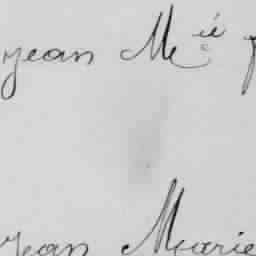 Jean M ié
Jean Marie